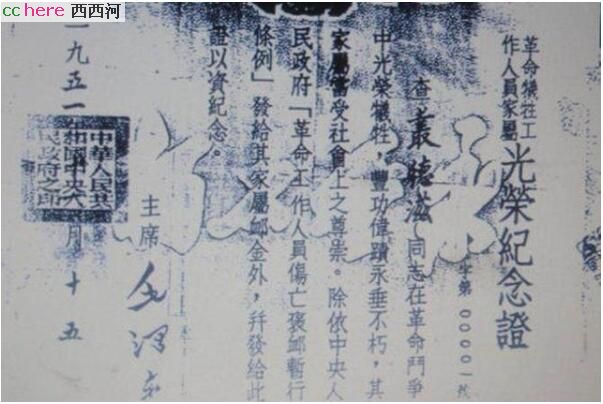 cchere 西西河
革命犧牲工
作人員家屬
光榮紀念證
字第00001號
查叢德滋同志在革命鬥爭
中光榮犧牲，豐功偉蹟永垂不朽，其
家屬當受社會上之尊崇。除依中央人
民政府「革命工作人員傷亡褒卹暫行
條例」發給其家屬卹金外，幷發給此
證以資紀念。
主席 毛澤东
一九五一 月十五
中華人民共
和國中央人
民政府之印